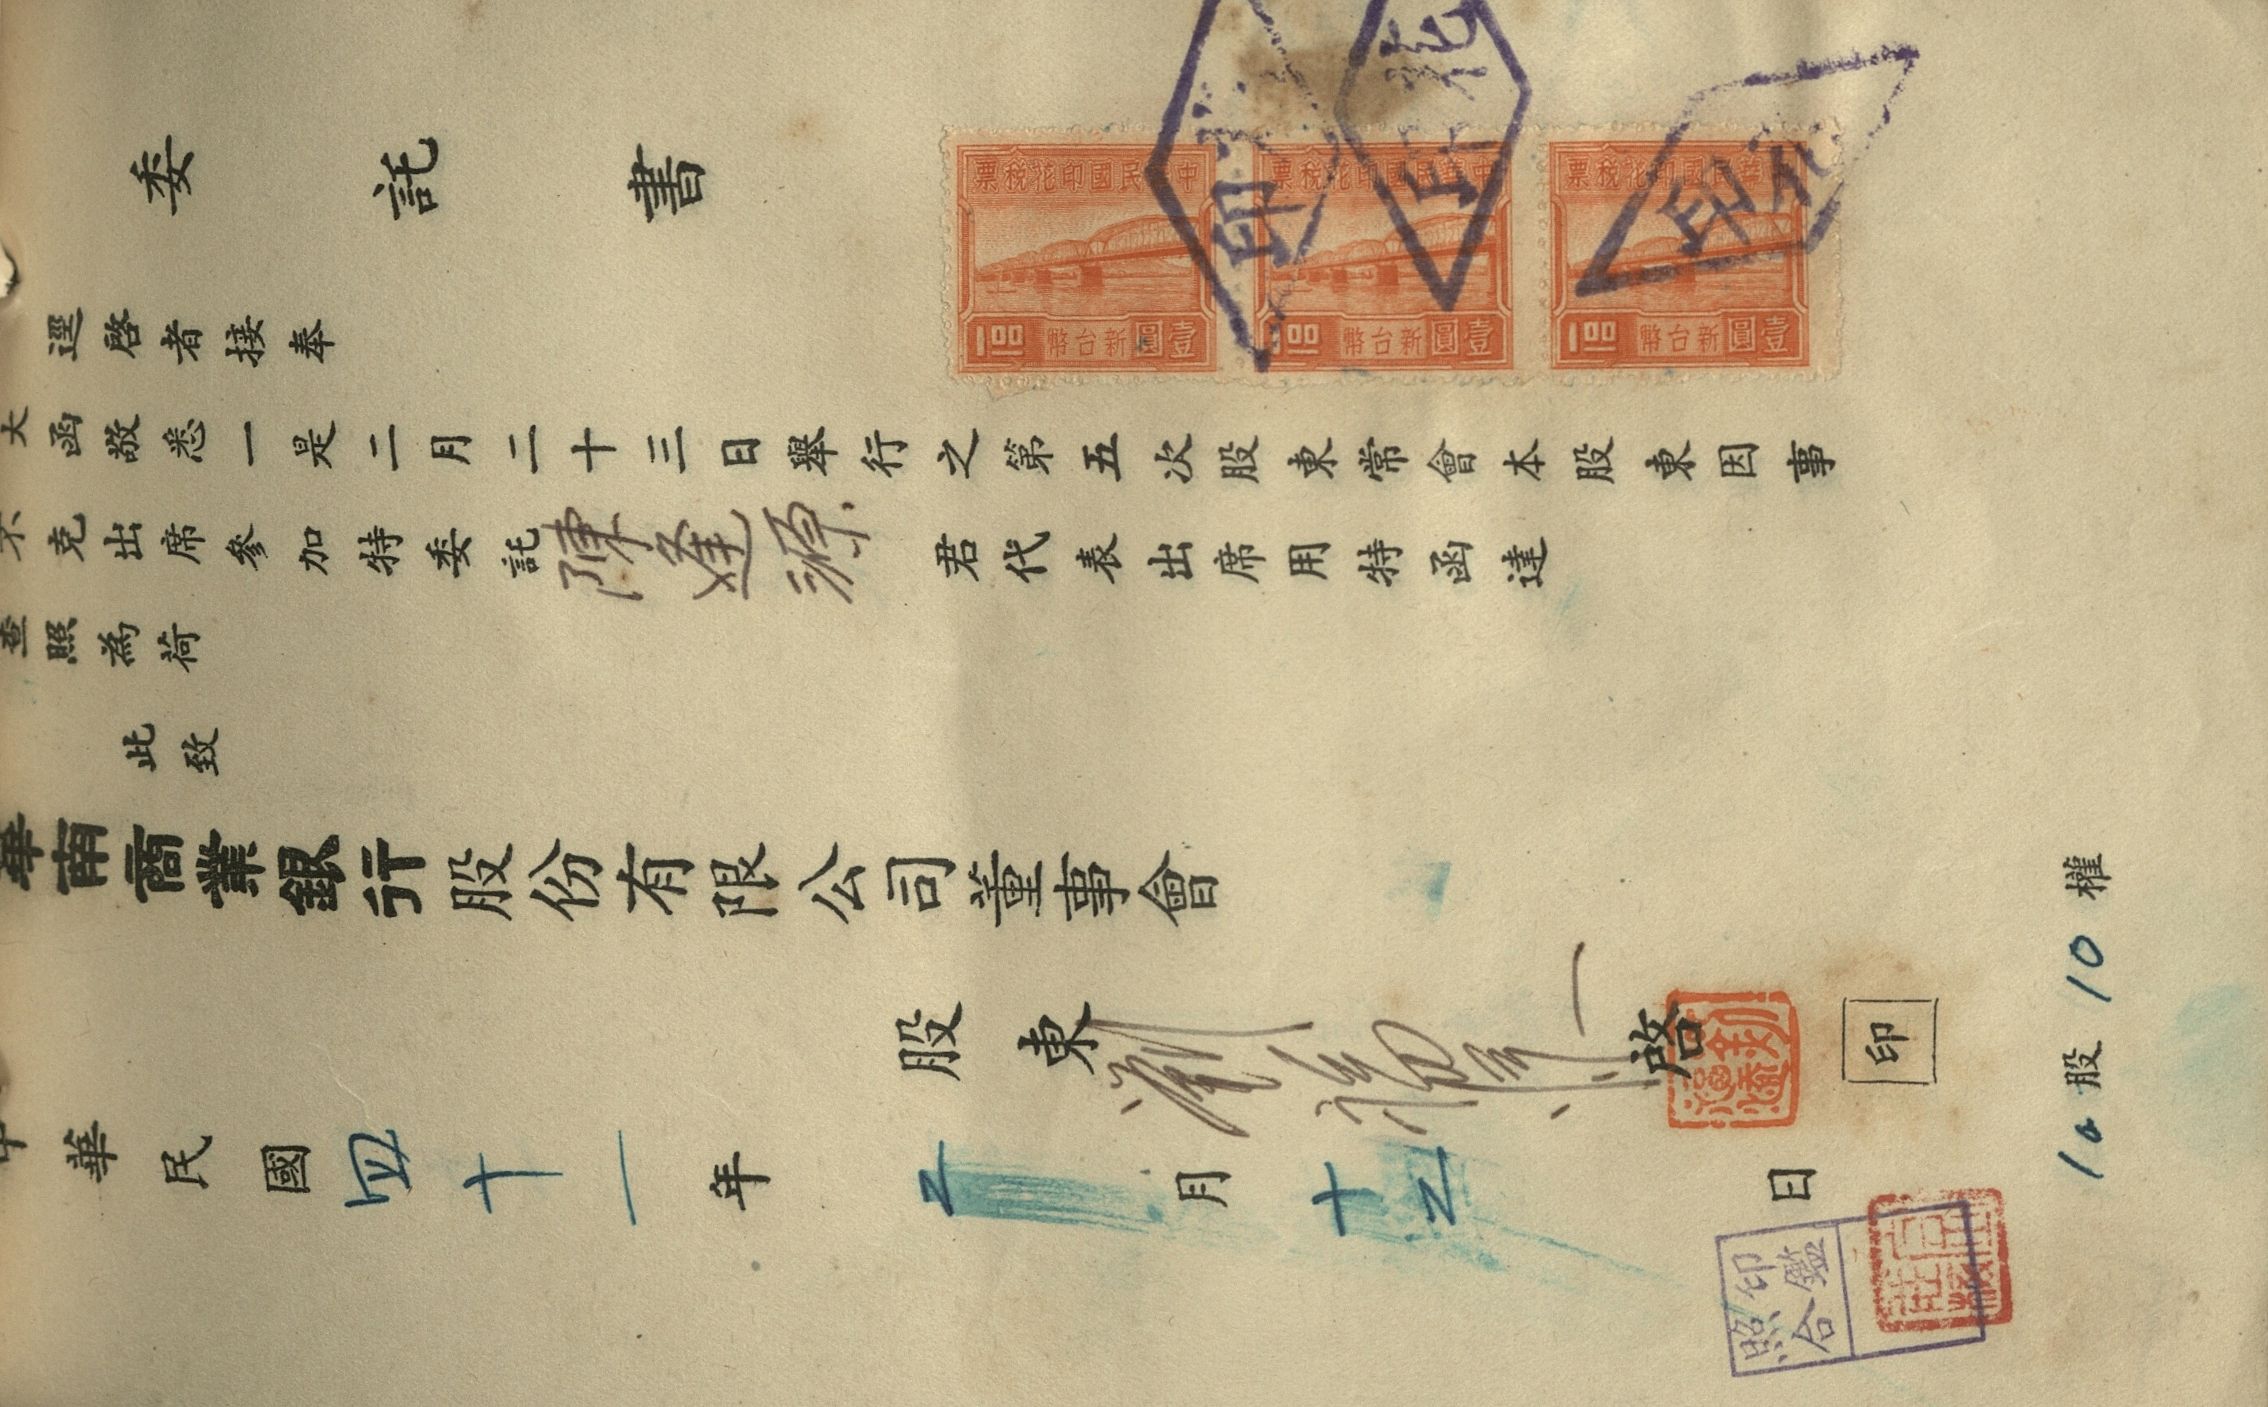 委託書
逕啓者接奉
大函敬悉一是二月二十三日舉行之第五次股東常會本股東因事
不克出席參加特委託陳逢源君代表出席用特函達
查照為荷
此致
華南商業銀行股份有限公司董事會
股東
啓
印
中華民國四十一年二月十五日
10股10權
中華民國印花稅票
壹圓新台幣100
中華民國印花稅票
壹圓新台幣100
中華民國印花稅票
壹圓新台幣100
印花
印花
印花
印鑑
照合